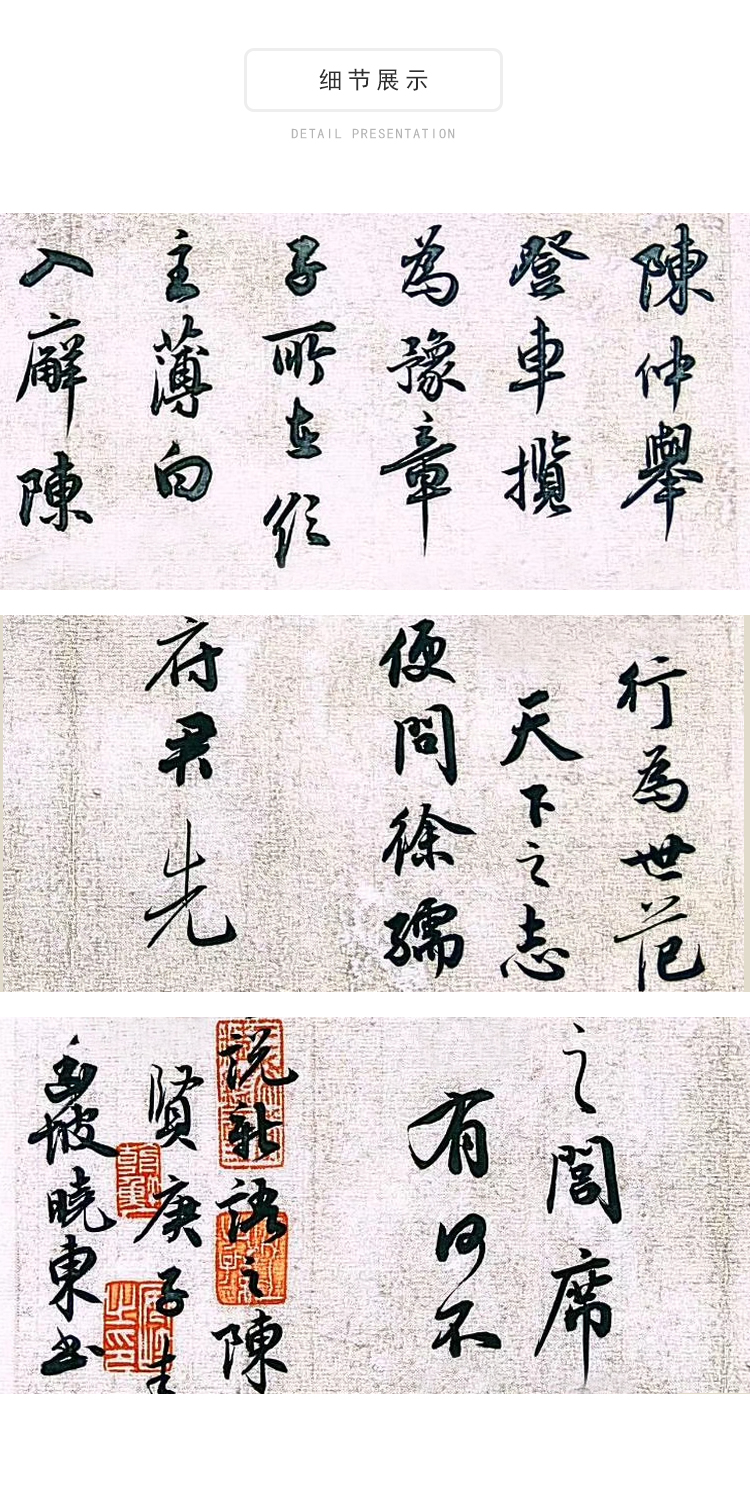 细节展示
DETAIL PRESENTATION
陳仲舉
登車攬
為豫章
子所在欲
主薄白
入廨陳
行為世范
天下之志
便問徐孺
府君先
之閭席
有何不
說新語之陳
賢庚子春
玉坡曉東书